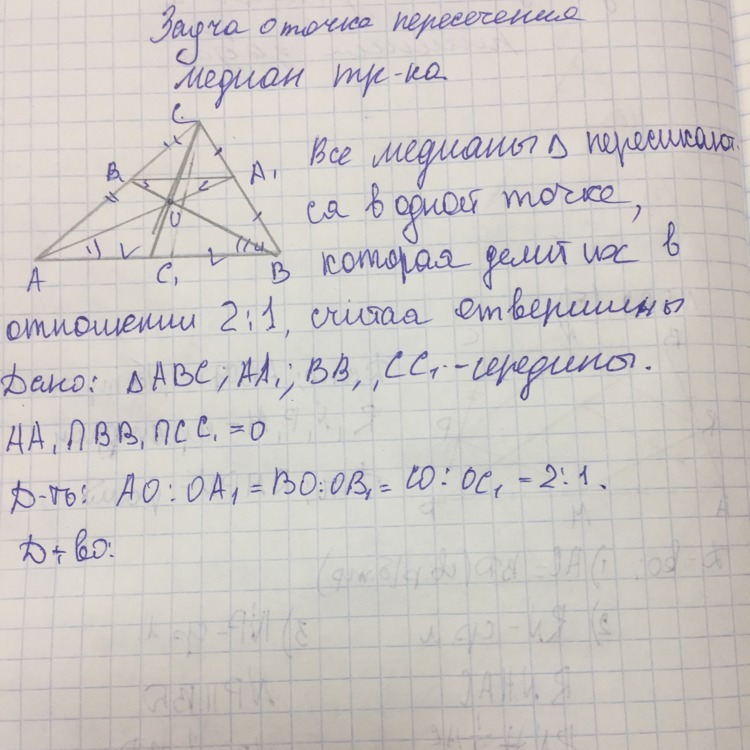 Задча о точке пересечения
медиан тр-ка
C
B₁
A₁
O
A
C₁
B
Все медианы Δ пересикают
ся в одной точке,
которая делит их в
отношении 2:1, считая от вершины
Дано: ΔABC; AA₁; BB₁, CC₁ - середины.
AA₁∩BB₁∩CC₁ = O
Д-ть: AO:OA₁ = BO:OB₁ = CO:OC₁ = 2:1.
Д-во: